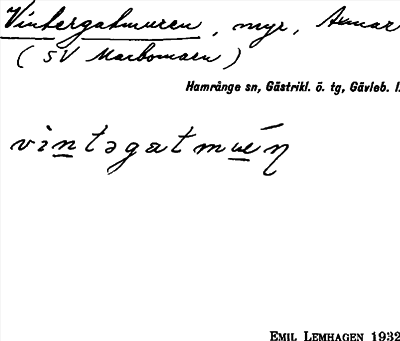 Vintergatmuren, myr, Annar
(SV Marbomuren)
Hamrånge sn, Gästrikl. ö. tg, Gävleb. l.
vintəgatmuéŋ
EMIL LEMHAGEN 1932